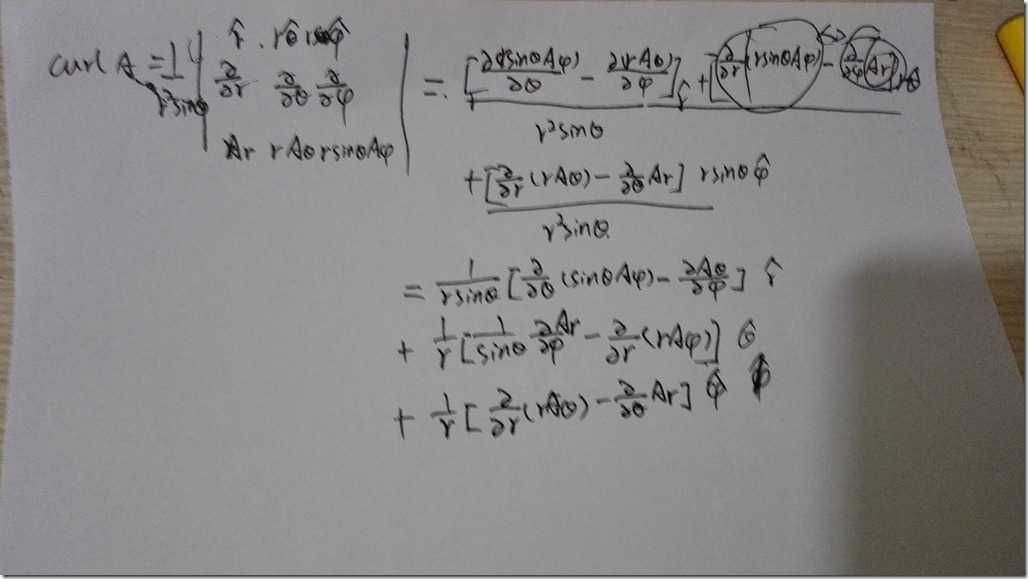 curl A = 1/(r²sinθ) | r̂ rθ̂ rsinθφ̂ |
| ∂/∂r ∂/∂θ ∂/∂φ |
| Ar rAθ rsinθAφ |
= [∂(rsinθAφ)/∂θ − ∂rAθ/∂φ] r̂ + [∂/∂r (rsinθAφ) − ∂/∂φ (Ar)] rθ̂
r²sinθ
+ [∂/∂r (rAθ) − ∂/∂θ Ar] rsinθ φ̂
r²sinθ
= 1/(rsinθ) [∂/∂θ (sinθAφ) − ∂Aθ/∂φ] r̂
+ 1/r [1/sinθ ∂Ar/∂φ − ∂/∂r (rAφ)] θ̂
+ 1/r [∂/∂r (rAθ) − ∂/∂θ Ar] φ̂